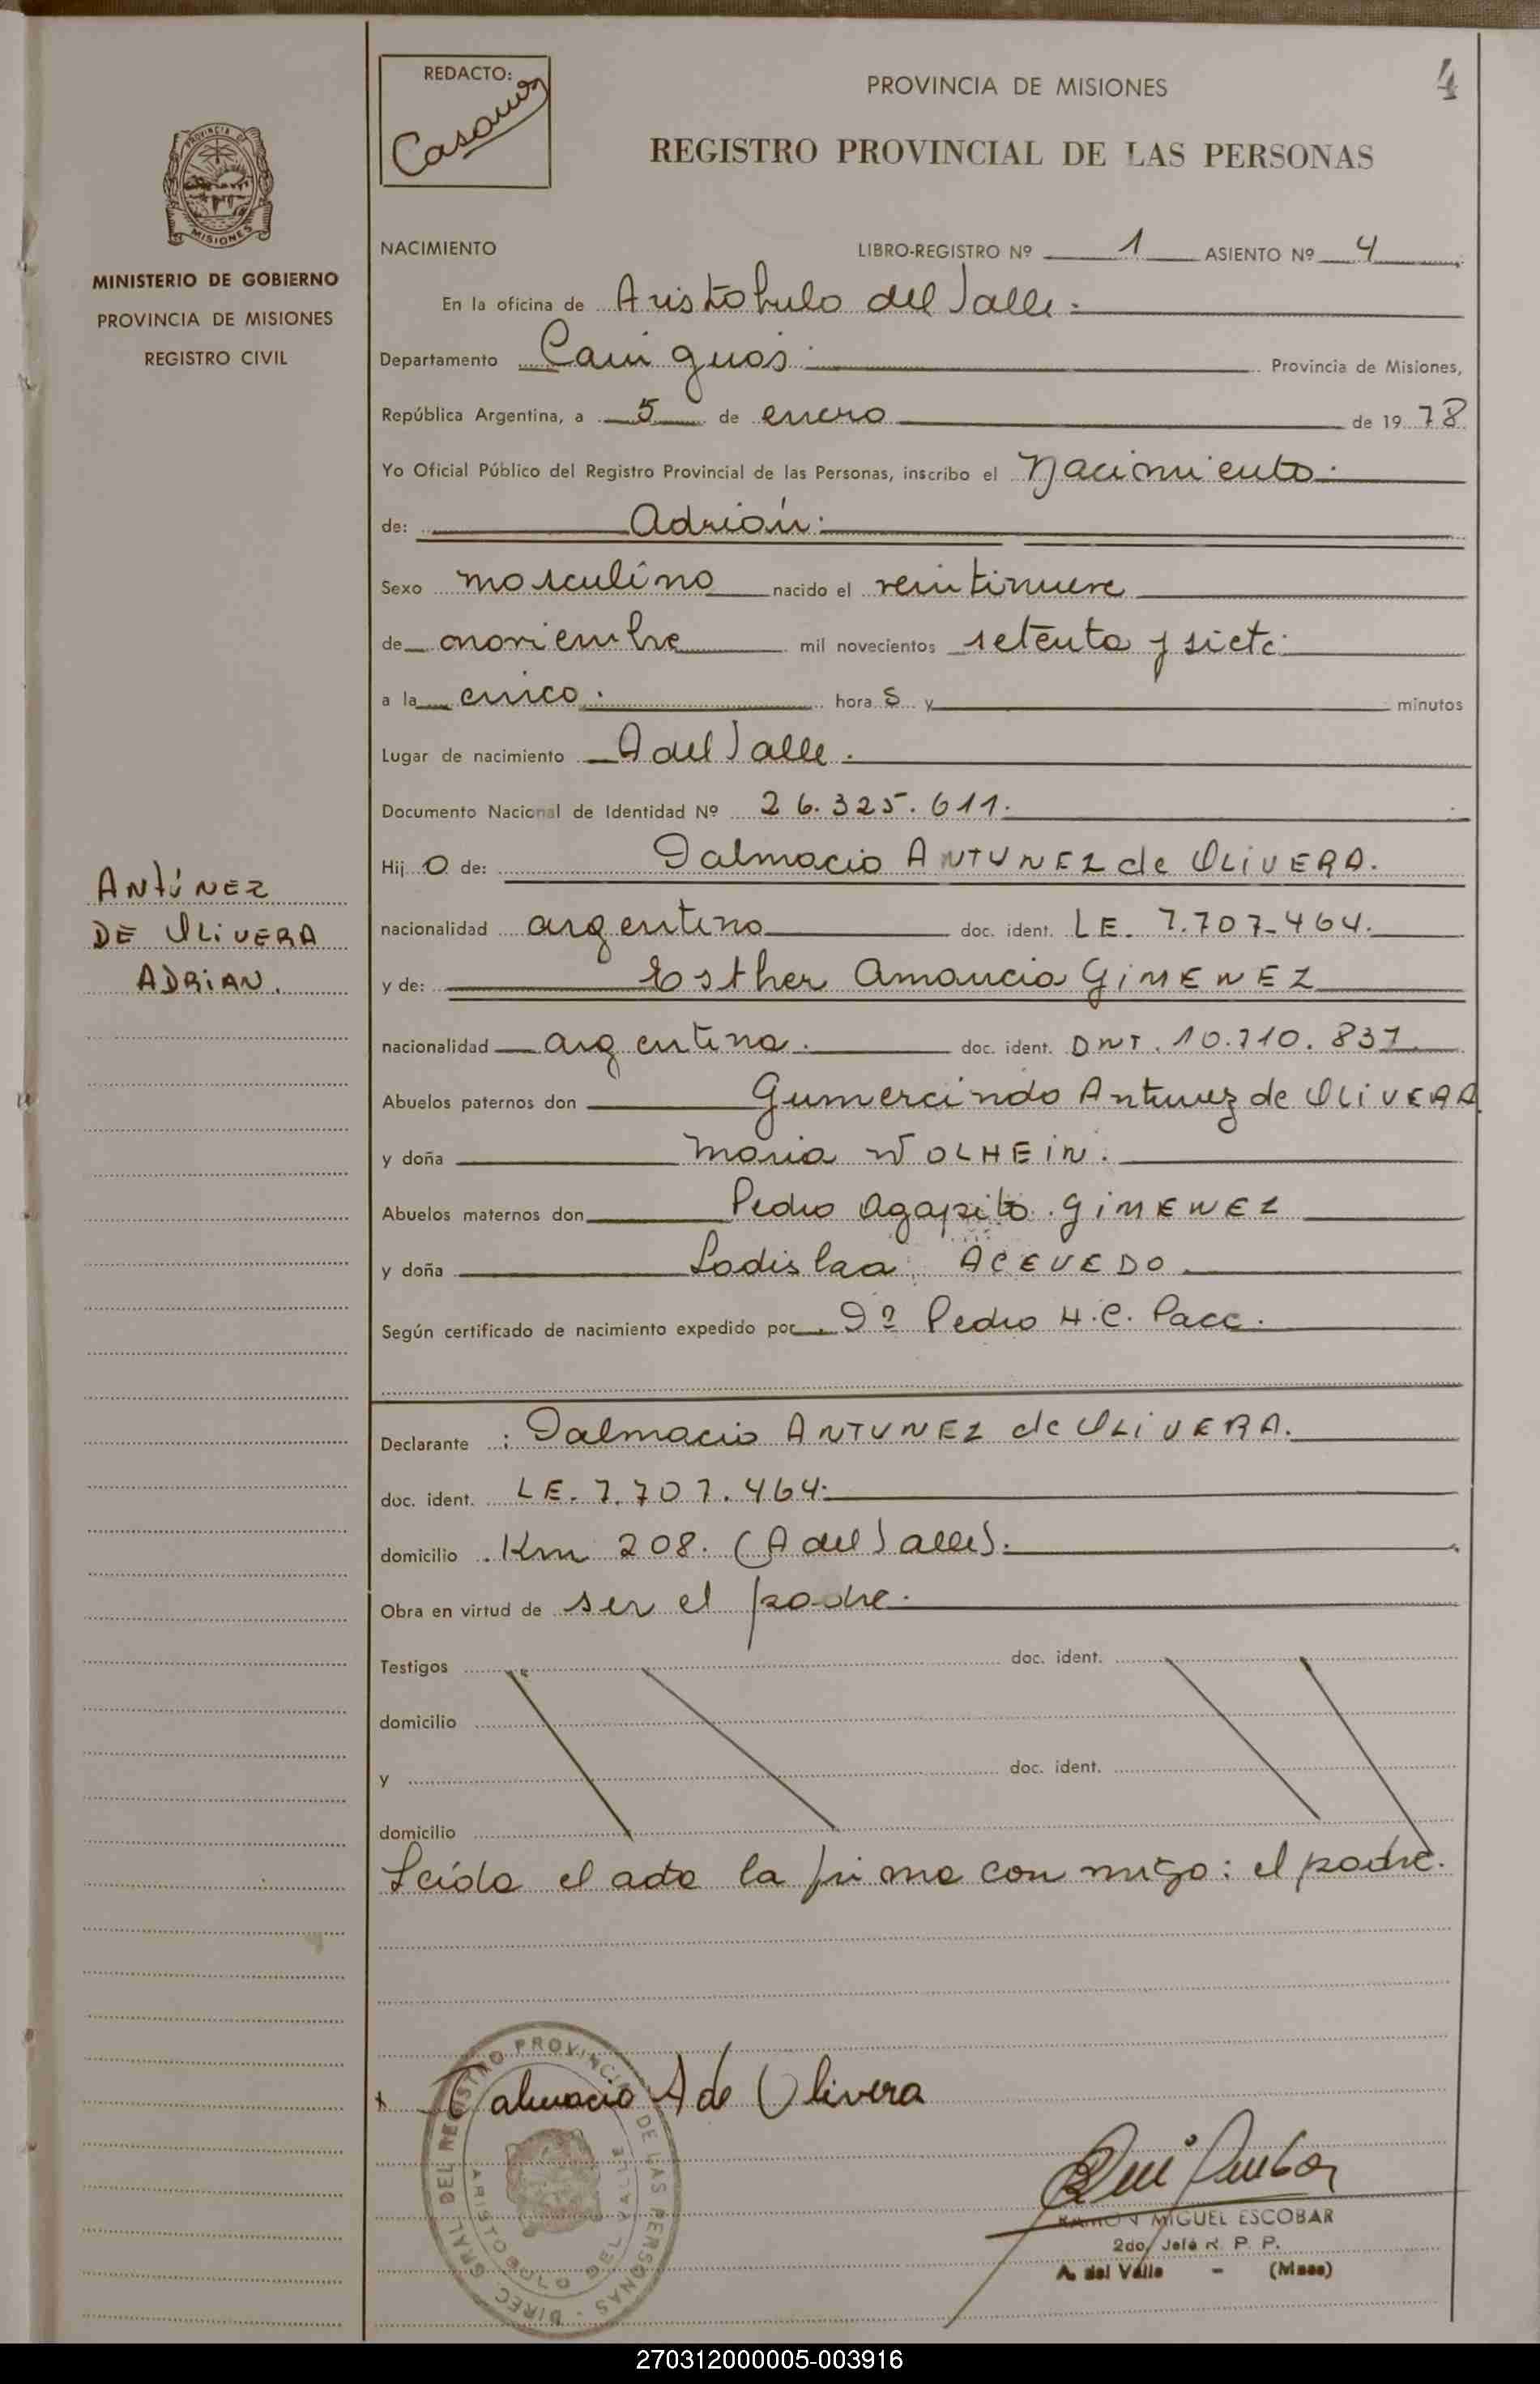 REDACTO:
PROVINCIA DE MISIONES
4
REGISTRO PROVINCIAL DE LAS PERSONAS
PROVINCIA DE
MISIONES
MINISTERIO DE GOBIERNO
PROVINCIA DE MISIONES
REGISTRO CIVIL
NACIMIENTO LIBRO-REGISTRO Nº 1 ASIENTO Nº 4
En la oficina de Aristobulo del Valle.
Departamento Cainguas. Provincia de Misiones,
República Argentina, a 5 de enero de 1978
Yo Oficial Público del Registro Provincial de las Personas, inscribo el Nacimiento.
de: Adrián:
Sexo masculino nacido el veintinueve
de noviembre mil novecientos setenta y siete.
a la cinco. hora s y minutos
Lugar de nacimiento A del Valle.
Documento Nacional de Identidad Nº 26.325.611.
Hij o de: Dalmacio ANTUNEZ de OLIVERA.
ANTÚNEZ
DE OLIVERA
ADRIAN.
nacionalidad argentino doc. ident. LE. 7.707.464.
y de: Esther Amancia GIMENEZ
nacionalidad argentina. doc. ident. DNI. 10.710.837.
Abuelos paternos don Gumercindo Antunez de OLIVERA
y doña Maria WOLHEIN.
Abuelos maternos don Pedro Agapito GIMENEZ
y doña Ladislaa ACEVEDO.
Según certificado de nacimiento expedido por Dº Pedro H.C. Pacc.
Declarante : Dalmacio ANTUNEZ de OLIVERA.
doc. ident. LE. 7.707.464.
domicilio Km 208. (A del Valle).
Obra en virtud de ser el padre.
Testigos doc. ident.
domicilio
y doc. ident.
domicilio
Leída el acta la firma con migo: el padre.
DIREC. GRAL DEL REGISTRO PROVINCIAL DE LAS PERSONAS
ARISTOBULO DEL VALLE
x Dalmacio A de Olivera
RAMON MIGUEL ESCOBAR
2do. Jefe R. P. P.
A. del Valle - (Mnes)
270312000005-003916